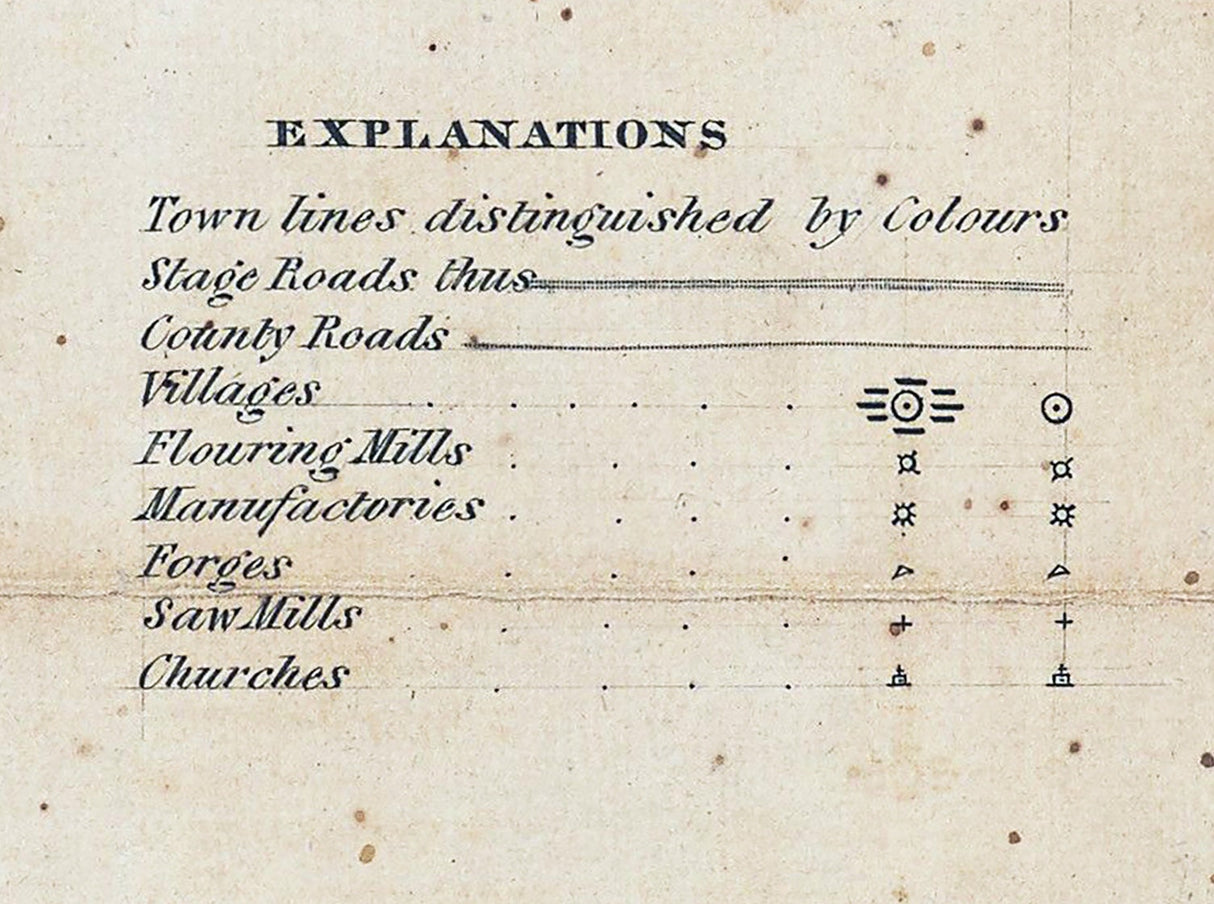 EXPLANATIONS
Town lines distinguished by Colours
Stage Roads thus
County Roads
Villages
Flouring Mills
Manufactories
Forges
Saw Mills
Churches